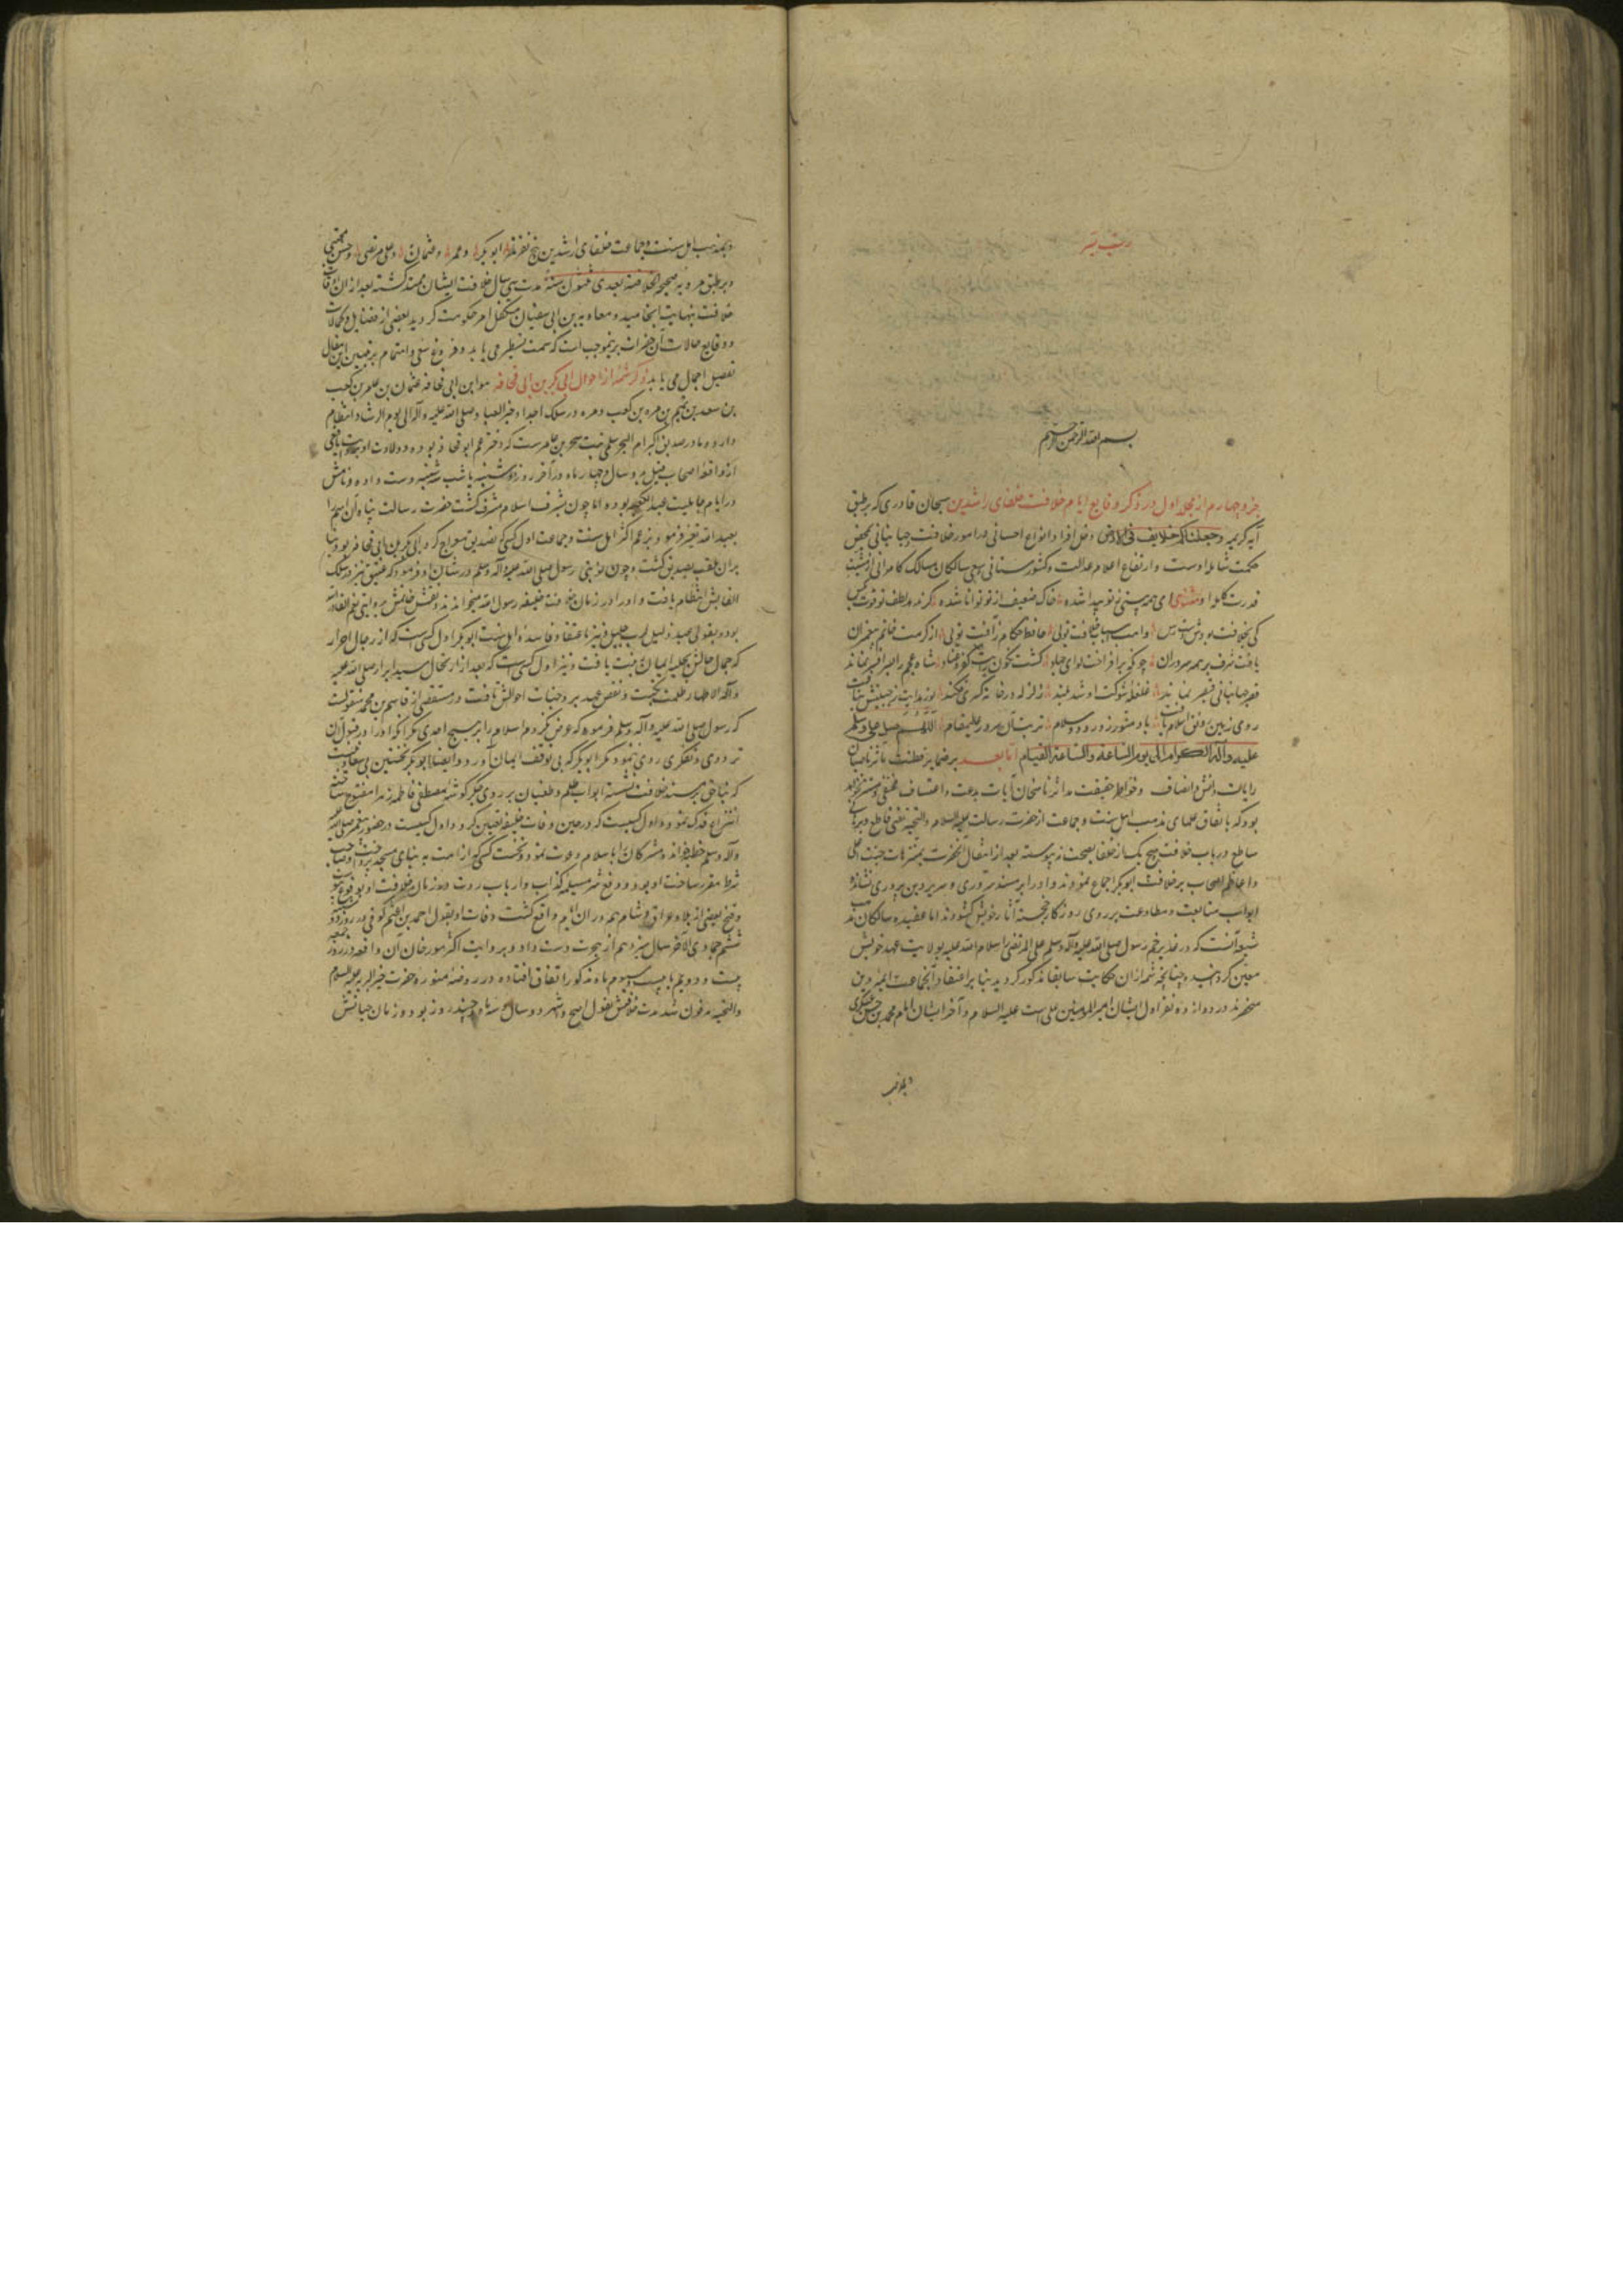 رب یسر
بسم الله الرحمن الرحیم
جزو چهارم از مجلد اول در ذکر وقایع ایام خلافت خلفای راشدین سبحان قادری که بر طبق
آیه کریمه وجعلناکم خلایف فی الارض دخل افراد انواع احسانی در امور خلافت جهانبانی محض
حکمت شامله اوست و ارتفاع اعلام عدالت و کشورستانی سعی سالکان مسالک کامرانی از نتیجه
قدرت کامله او مثنوی ای همه هستی ز تو پیدا شده خاک ضعیف از تو توانا شده گر نه بلطف تو قوت
کی بخلافت بودش دست رس واهب اسباب خلافت تویی حافظ حکام ز آفت تویی از کرمت خاتم پیغمبران
یافت شرف بر همه سروران چونکه برافراخت لوای جلو گشت نگون رایت کفر شاه عجم را سر افسر نماند
قصر جهانبانی قیصر نماند غلغل شوکت او شد بلند زلزله در خانه کسری فکند نور هدایت ز جبینش بتافت
روی زمین رونق اسلام یافت باد منور ز درود و سلام تربت آن سرور علیمقام اللهم صل وسلم
علیه وآله الکرام الی یوم الساعة والساعة القیام اما بعد بر ضمایر فطنت مآثر ناصبان
رایات دانش و انصاف و خواطر حقیقت مدارثر ناسخان آیات بدعت و اعتساف مخفی و مستتر نماند
بود که باتفاق علمای مذهب اهل سنت و جماعت از حضرت رسالت علیه السلام والتحیه نصی قاطع و برهانی
ساطع در باب خلافت هیچ یک از خلفا بصحت نه پیوسته بعد از انتقال آنحضرت بمتنزهات جنت اعلی
و اعاظم اصحاب بر خلافت ابوبکر اجماع نمودند و او را بر مسند سروری و سریر دین پروری نشانده
ابواب متابعت و مطاوعت بر روی روزگار خجسته آثار خویش گشودند اما عقیده سالکان مذهب
شیعه آنست که در غدیر خم رسول صلی الله علیه وآله وسلم علی المرتضی را سلام الله علیه بولایت عهد خویش
معین گردانید و چنانچه شمه از ان حکایت سابقا مذکور گردید بنا بر اعتقاد آنجماعت ائمه دین
منحصرند در دوازده نفر اول ایشان امیر المومنین علی است علیه السلام و آخر ایشان امام محمد بن حسن عسکری
و بمذهب
و بمذهب اهل سنت و جماعت خلفای راشدین پنج نفرند ابوبکر و عمر و عثمان و علی مرتضی و حسن مجتبی
و بر طبق مرویه صحیحه الخلافة بعدی ثلثون سنة مدت سی سال خلافت ایشان ممتد گشته بعد از ان زمان
خلافت بنهایت انجامید و معاویه بن ابی سفیان متکفل امر حکومت گردید بعضی از فضایل و کمالات
و وقایع حالات آن حضرات بر نموجب است که سمت تسطیر می یابد و فروغ سعی و اهتمام بر تبیین این مقال
تفصیل اجمال می یابد ذکر شمه از احوال ابی بکر بن ابی قحافه هو ابن ابی قحافه عثمان بن عامر بن کعب
بن سعد بن تیم بن مره بن کعب و مره در سلک اجداد خیر العباد صلی الله علیه وآله الی یوم التناد انتظام
دارد و مادر صدیق اکبر ام الخیر سلمی بنت صخر بن عامر است که دختر عم ابو قحافه بوده و ولادت او بروایت یافعی
از واقعه اصحاب فیل بدو سال و چهار ماه در آخر روز دوشنبه یا شب سه شنبه دست داده و نامش
در ایام جاهلیت عبد الکعبه بوده اما چون بشرف اسلام مشرف گشت حضرت رسالت پناه آن اسم را
بعبد الله تغییر فرمود و بزعم اکثر اهل سنت و جماعت اول کسی که تصدیق معراج کرد ابی بکر بن ابی قحافه بود بنا
بران ملقب بصدیق گشت و چون نوبتی رسول صلی الله علیه وآله وسلم در شان او فرمود که عتیق نیز در سلک
القابش انتظام یافت و او را در زمان خلافت خلیفه رسول الله میخواندند و نقش خاتمش بروایتی نعم القادر الله
بود و بقولی عبد ذلیل لرب جلیل و نیز باعتقاد فاسده اهل سنت ابوبکر اول کسی است که از رجال احرار
که جمال حالش بحلیه ایمان زینت یافت و نیز اول کسی است که بعد از ارتحال سید ابرار صلی الله علیه
وآله الاطهار ظلمت نکبت و نقض عهد بر وجنات احوالش تافت و در مستقصی از قاسم بن محمد منقولست
که رسول صلی الله علیه وآله وسلم فرموده که عرض نکردم اسلام را بر هیچ احدی مگر آنکه او را در قبول آن
ترددی و تفکری روی نمود مگر ابوبکر که بی توقف ایمان آورد و ایضا ابوبکر نخستین بی سعادتیست
که بناحق بر مسند خلافت نشسته ابواب ظلم و طغیان بر روی جگر گوشه مصطفی فاطمه زهرا مفتوح ساخته
انتزاع فدک نمود و اول کسیست که در حین وفات خلیفه تعیین کرد و اول کسیست که در حضور پیغمبر صلی الله علیه
وآله وسلم خطبه خواند و مشرکان را باسلام دعوت نمود و نخست کسی که از امت به بنای مسجد پرداخت و صاحب
شرط مقرر ساخت او بود و دفع شر مسیلمه کذاب و ارباب ردت در زمان خلافت او بوقوع پیوست
و فتح بعضی از بلاد عراق و شام هم در ان ایام واقع گشت وفات او بقول احمد بن اعثم کوفی در روز دوشنبه
ششم جمادی الآخر سال سیزدهم از هجرت دست داد و بروایت اکثر مورخان آن واقعه در روز جمعه
بیست و دویم یا بیست سیوم ماه مذکور اتفاق افتاده در روضه منوره حضرت خیر البریه علیه السلام
والتحیه مدفون شد مدت خلافتش بقول اصح و اشهر دو سال و سه ماه و چند روز بود و زمان حیاتش